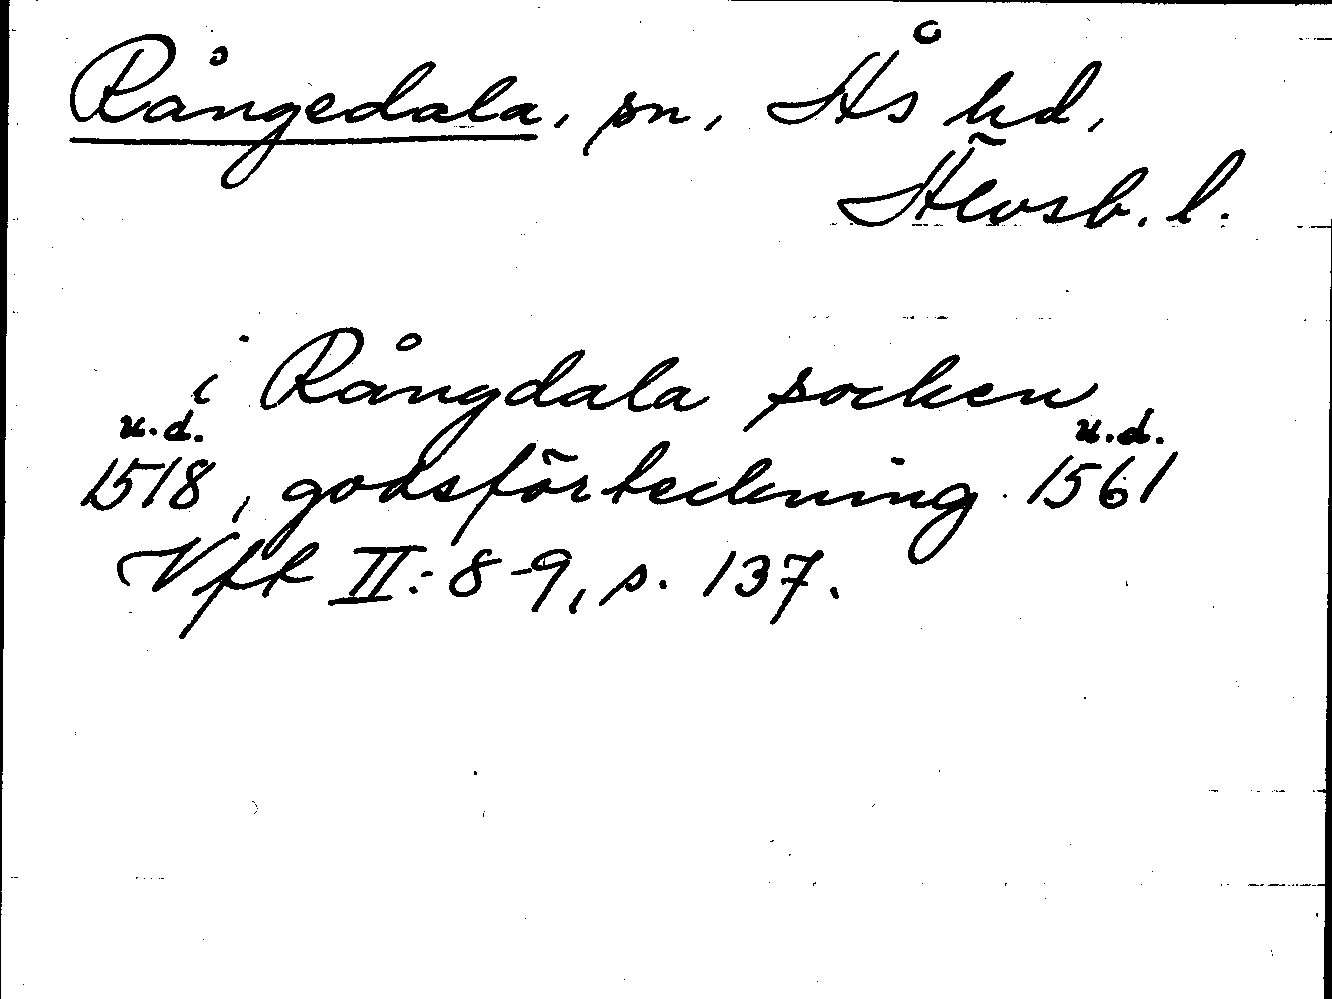 Rångedala, sn, Ås hd,
Älvsb. l.
i Rångdala socken
u.d. u.d.
1518, godsförteckning 1561
Vft II: 8-9, s. 137.